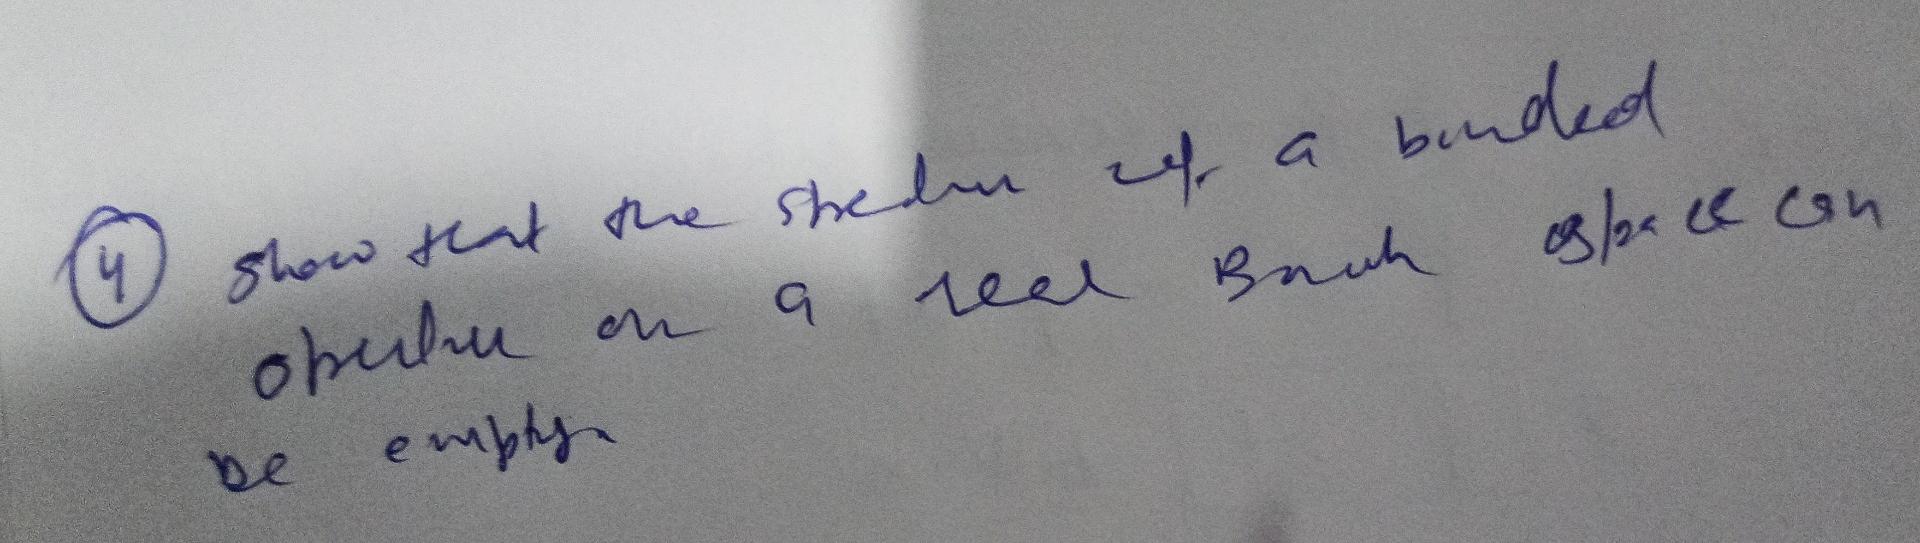 ④ Show that the spectrum of a bounded
operator on a real Banach space can
be empty